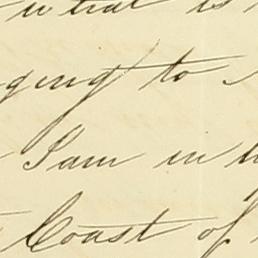 what is
ging to
I am in
Coast of